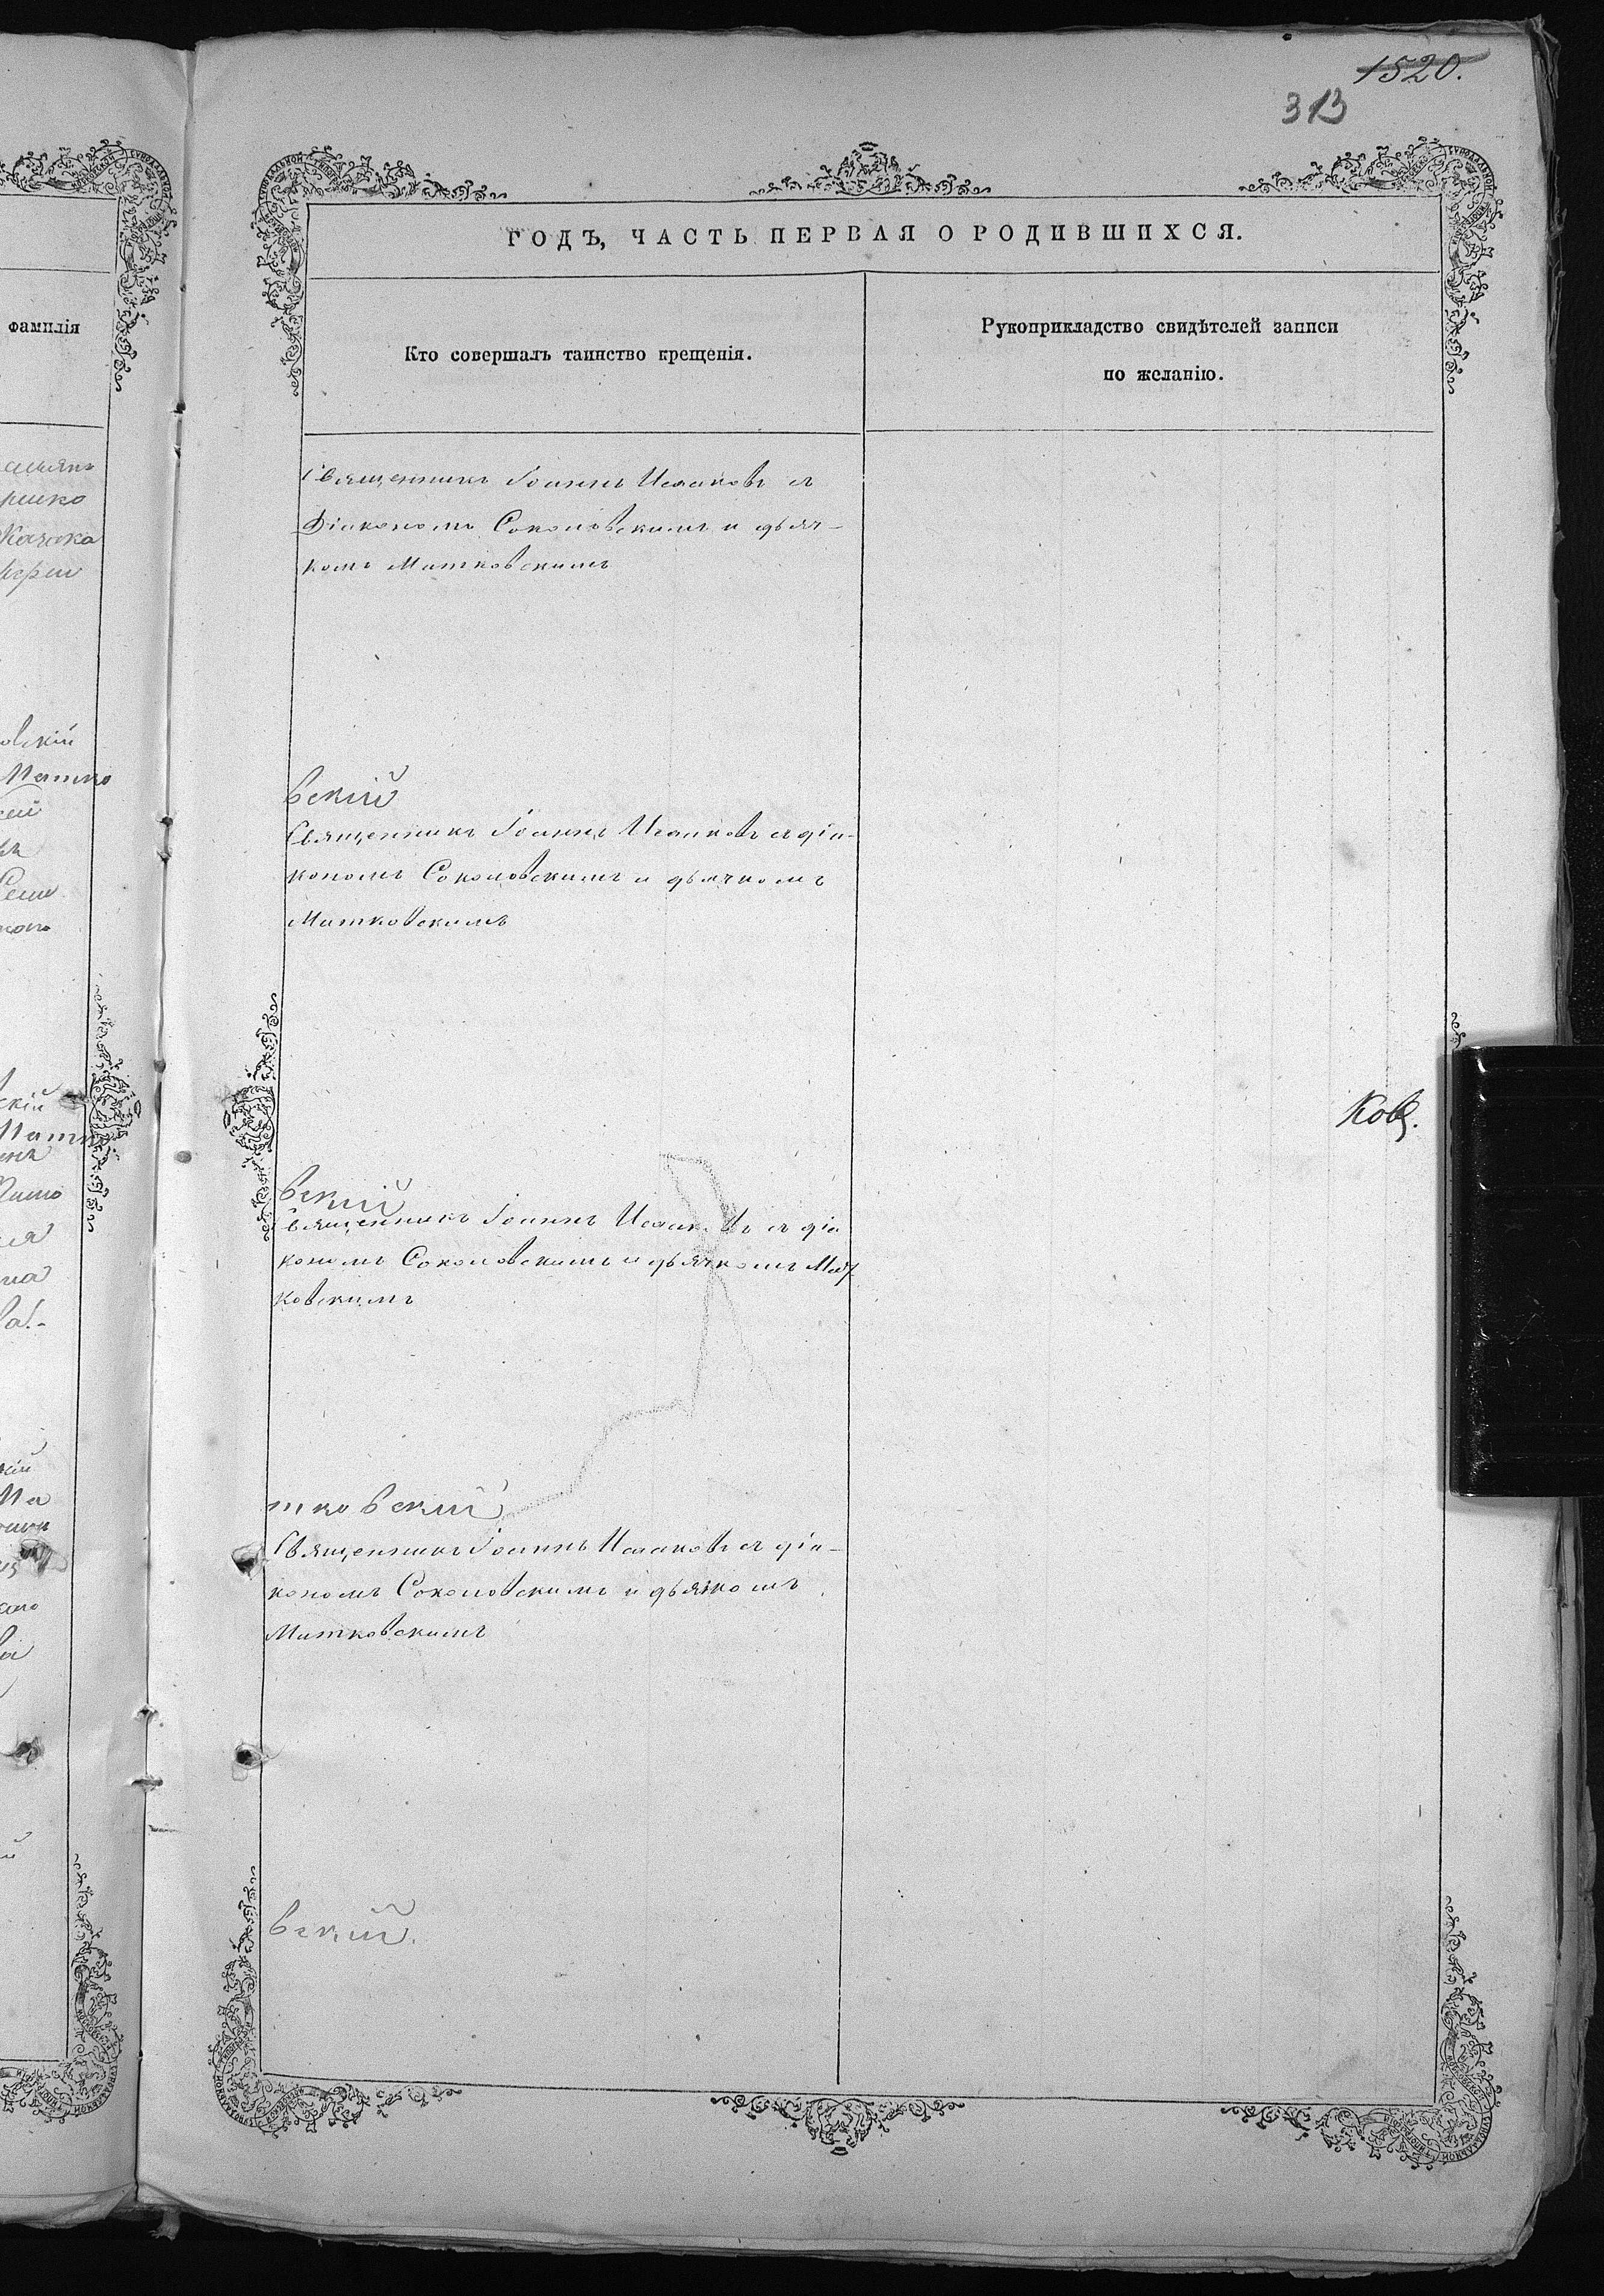 1520.
313
ГОДЪ, ЧАСТЬ ПЕРВАЯ О РОДИВШИХСЯ.
фамилія
Кто совершалъ таинство крещенія.
Рукоприкладство свидѣтелей записи
по желанію.
Священникъ Іоаннъ Исааковъ съ
Діакономъ Соколовскимъ и дьяч-
комъ Матковскимъ
вскій
Священникъ Іоаннъ Исааковъ съ діа-
кономъ Соколовскимъ и дьячкомъ
Матковскимъ
Ков.
вскій
Священникъ Іоаннъ Исааковъ съ діа
кономъ Соколовскимъ и дьячкомъ Мат
ковскимъ
тковскій
Священникъ Іоаннъ Исааковъ съ діа-
кономъ Соколовскимъ и дьячкомъ
Матковскимъ
вскій.